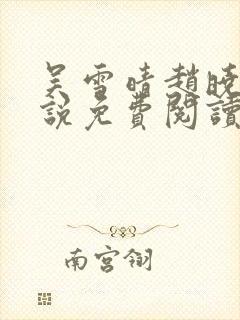 吴雪晴趙晓
說免費閱讀
南宮翎